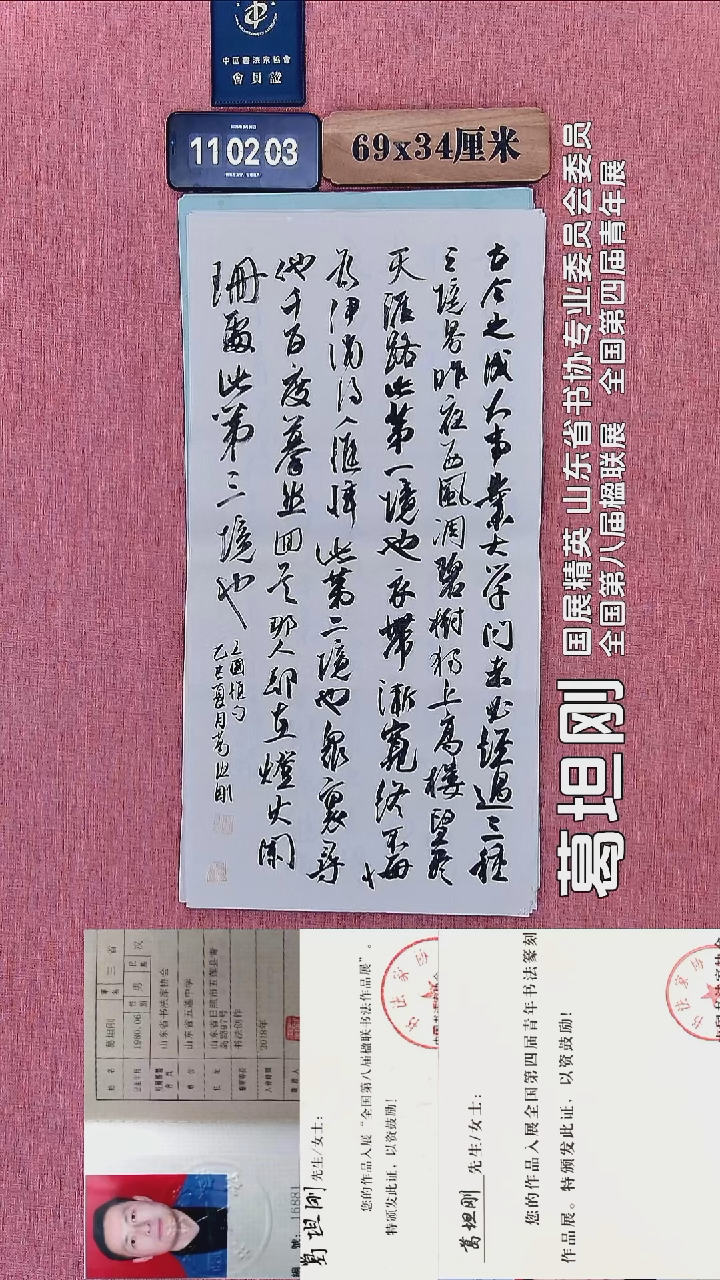 中国书法家协会
會員證
11 02 03
69x34厘米
古今之成大事業大学问者必经過三種
之境界昨夜西風凋碧樹獨上高樓望盡
天涯路此第一境也衣帶漸寬终不悔
為伊消得人憔悴此第二境也衆裏尋
他千百度驀然回首那人却在燈火闌
珊處此第三境也
王國維句
乙巳夏月葛坦刚
葛坦刚
国展精英 山东省书协专业委员会委员
全国第八届楹联展 全国第四届青年展
葛坦刚
1980.06
男
汉
山东省书法家协会
山东省五莲中学
书法创作
2018年
編 號: 16881
葛坦刚 先生/女士:
您的作品入展“全国第八届楹联书法作品展”。
特颁发此证,以资鼓励!
葛坦刚 先生/女士:
您的作品入展全国第四届青年书法篆刻
作品展。特颁发此证,以资鼓励!